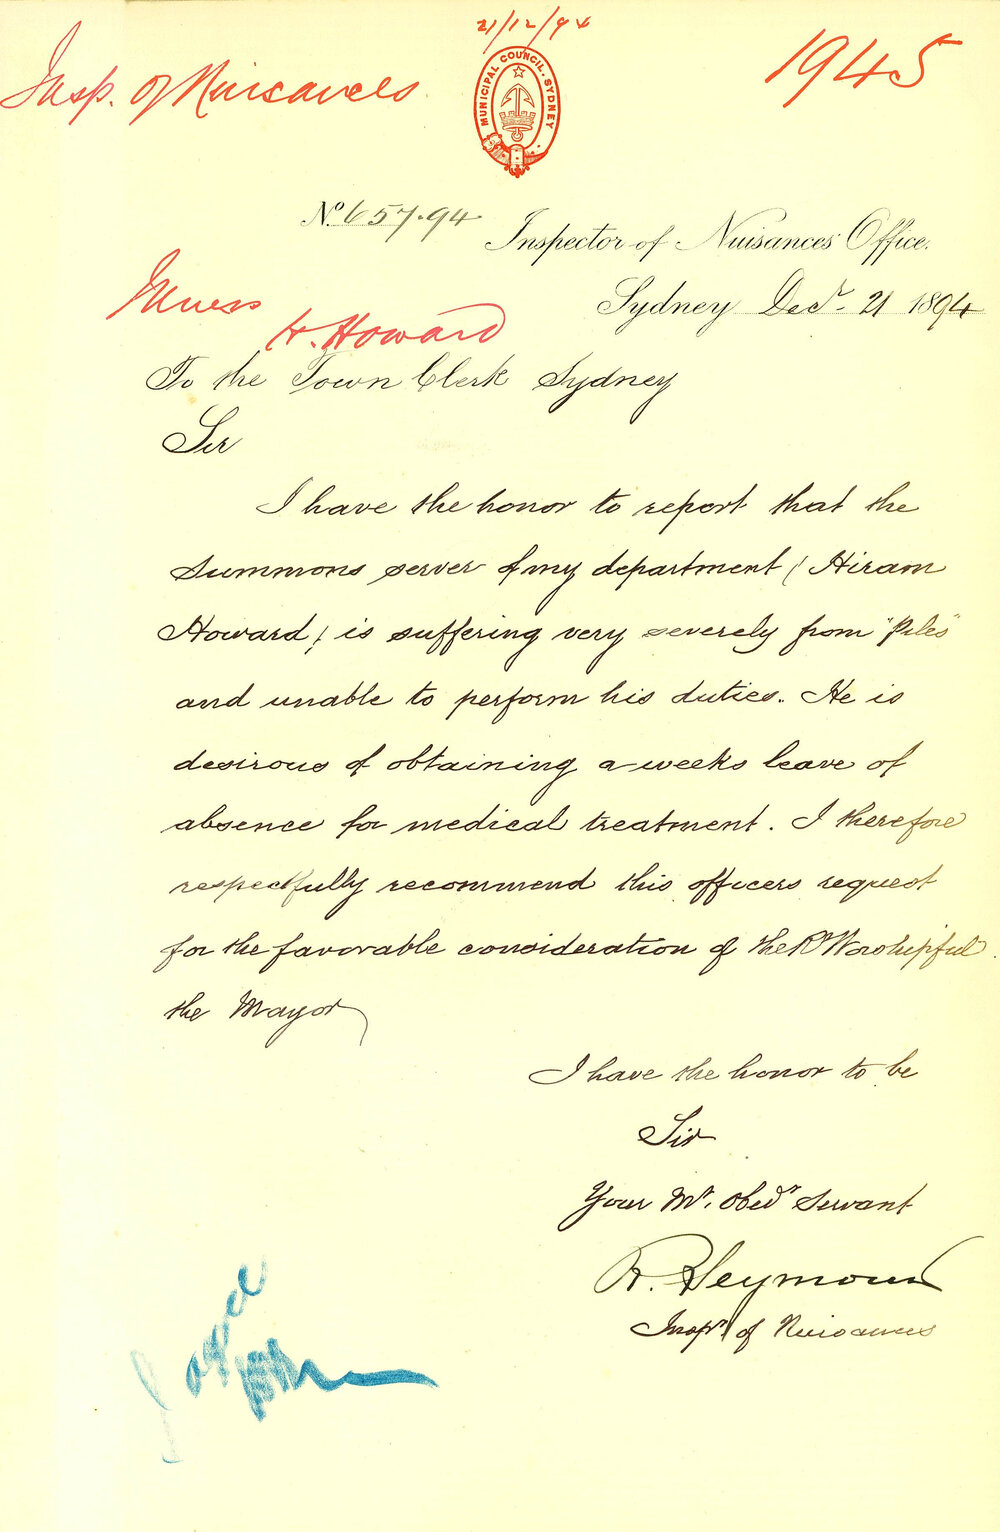 21/12/94
Insp. of Nuisances
1945
MUNICIPAL COUNCIL. SYDNEY
No. 657.94
Inspector of Nuisances' Office.
Sydney Decr. 21 1894
Illness
H. Howard
To the Town Clerk Sydney
Sir
I have the honor to report that the
summons server of my department (Hiram
Howard) is suffering very severely from "Piles"
and unable to perform his duties. He is
desirous of obtaining a weeks leave of
absence for medical treatment. I therefore
respectfully recommend this officers request
for the favorable consideration of the Rt Worshipful
the Mayor
I have the honor to be
Sir
Your Mt. Obedt Servant
R. Seymour
Inspr of Nuisances